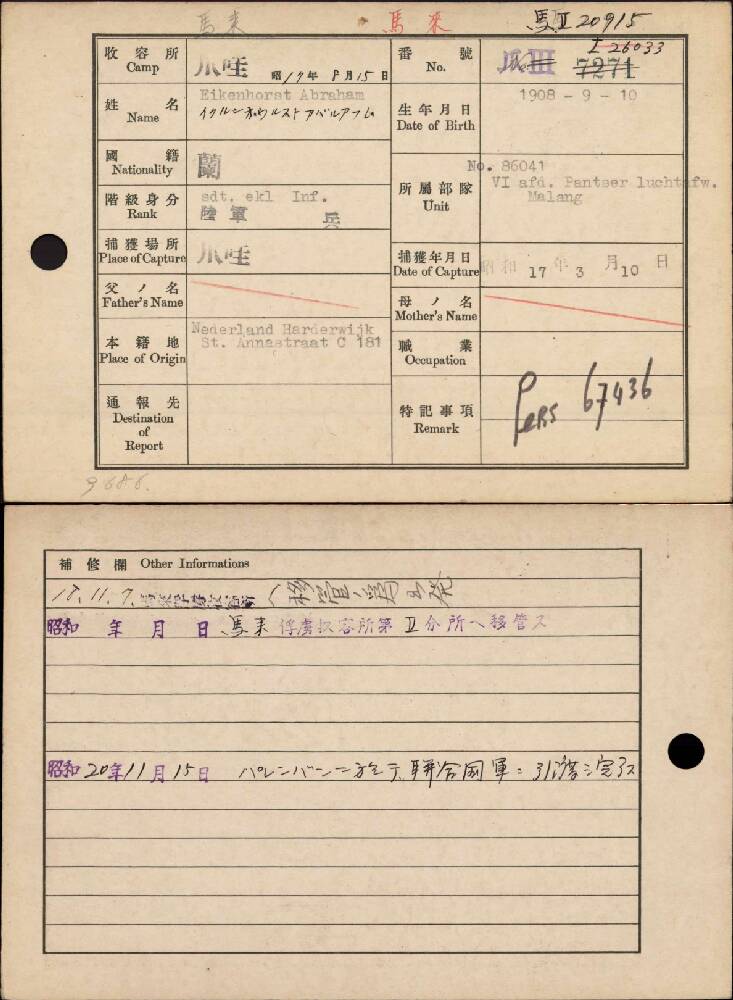 馬来 馬来 馬Ⅱ 20915
I 26033
收容所 Camp 爪哇 昭17年8月15日
番號 No. 爪Ⅲ 7271
姓名 Name Eikenhorst Abraham
生年月日 Date of Birth 1908 - 9 - 10
國籍 Nationality 蘭
所屬部隊 Unit No. 86041
VI afd. Pantser luchtafw.
Malang
階級身分 Rank sdt. ekl Inf.
陸軍 兵
捕獲場所 Place of Capture 爪哇
捕獲年月日 Date of Capture 昭和 17年 3月 10日
父ノ名 Father's Name
母ノ名 Mother's Name
本籍地 Place of Origin Nederland Harderwijk
St. Annastraat C 181
職業 Occupation
通報先 Destination of Report
特記事項 Remark Pers 67436
9686.
補修欄 Other Informations
18.11.7. ヘ移管ノ為出発
昭和 年 月 日 馬来俘虜収容所第Ⅱ分所ヘ移管ス
昭和20年11月15日 パレンバンニ於テ聯合国軍ニ引渡シ完了ス